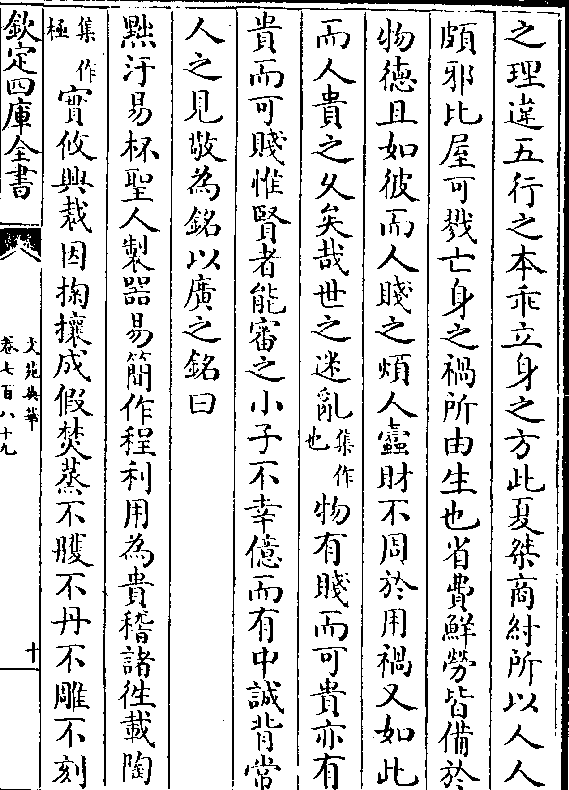 之理違五行之本乖立身之方此夏桀商紂所以人人
頗邪比屋可戮亡身之禍所由生也省費鮮勞皆備於
物德且如彼而人賤之煩人蠧財不周於用禍又如此
而人貴之久矣哉世之迷亂集作也物有賤而可貴亦有
貴而可賤惟賢者能審之小子不幸億而有中誠背常
人之見敬為銘以廣之銘曰
㸃汙易杯聖人製器易簡作程利用為貴稽諸徃載陶
集作極實攸興栽因掬攘成假焚蒸不雘不丹不雕不刻
欽定四庫全書
文苑英華
卷七百八十九
十